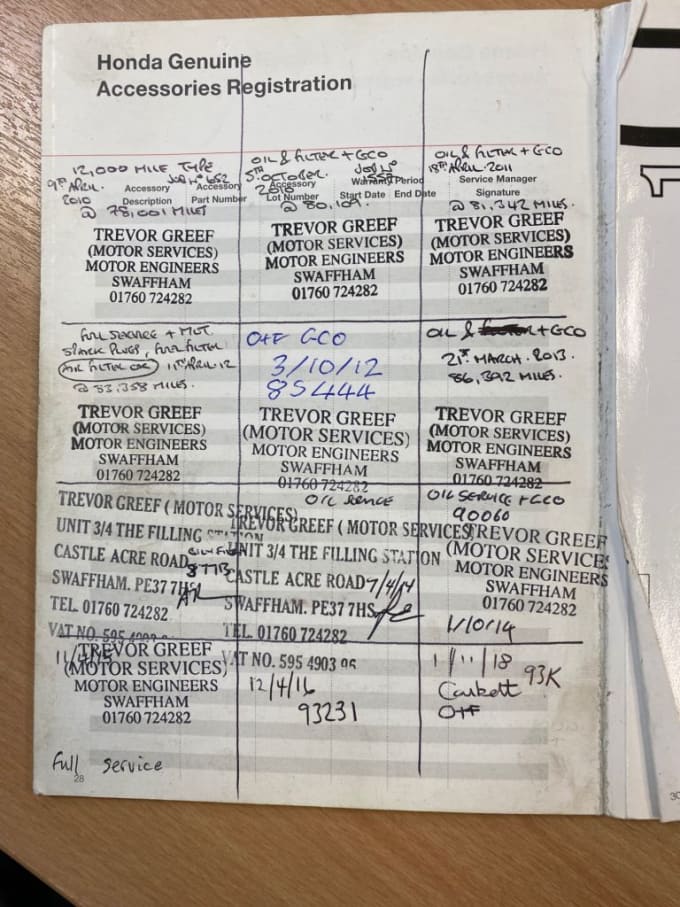 Honda Genuine
Accessories Registration
12,000 MILE TYPE
9TH APRIL.
2010
JOB No 652
@ 78,001 MILES
Accessory
Description
Accessory
Part Number
TREVOR GREEF
(MOTOR SERVICES)
MOTOR ENGINEERS
SWAFFHAM
01760 724282
OIL & FILTER + GCO
5TH OCTOBER.
2010
JOB No
@ 80,109.
Accessory
Lot Number
Warranty Period
Start Date End Date
TREVOR GREEF
(MOTOR SERVICES)
MOTOR ENGINEERS
SWAFFHAM
01760 724282
OIL & FILTER + GCO
18TH APRIL. 2011
Service Manager
Signature
@ 81,342 MILES.
TREVOR GREEF
(MOTOR SERVICES)
MOTOR ENGINEERS
SWAFFHAM
01760 724282
FULL SERVICE + MOT
SPARK PLUGS, FUEL FILTER
AIR FILTER 11TH APRIL 12
@ 83,358 MILES.
TREVOR GREEF
(MOTOR SERVICES)
MOTOR ENGINEERS
SWAFFHAM
01760 724282
O+F GCO
3/10/12
85444
TREVOR GREEF
(MOTOR SERVICES)
MOTOR ENGINEERS
SWAFFHAM
01760 724282
OIL & + GCO
21ST. MARCH. 2013.
86,392 MILES.
TREVOR GREEF
(MOTOR SERVICES)
MOTOR ENGINEERS
SWAFFHAM
01760 724282
TREVOR GREEF ( MOTOR SERVICES)
UNIT 3/4 THE FILLING STATION
CASTLE ACRE ROAD
SWAFFHAM. PE37 7HS
TEL. 01760 724282
VAT NO. 595 4903
OIL SERVICE
TREVOR GREEF ( MOTOR SERVICES)
UNIT 3/4 THE FILLING STATION
CASTLE ACRE ROAD
7/4/14
SWAFFHAM. PE37 7HS
TEL. 01760 724282
VAT NO. 595 4903 06
OIL SERVICE + GCO
90060
TREVOR GREEF
(MOTOR SERVICES
MOTOR ENGINEERS
SWAFFHAM
01760 724282
1/10/14
TREVOR GREEF
(MOTOR SERVICES)
MOTOR ENGINEERS
SWAFFHAM
01760 724282
Full Service
12/4/16
93231
1/11/18
93K
O+F
28
30